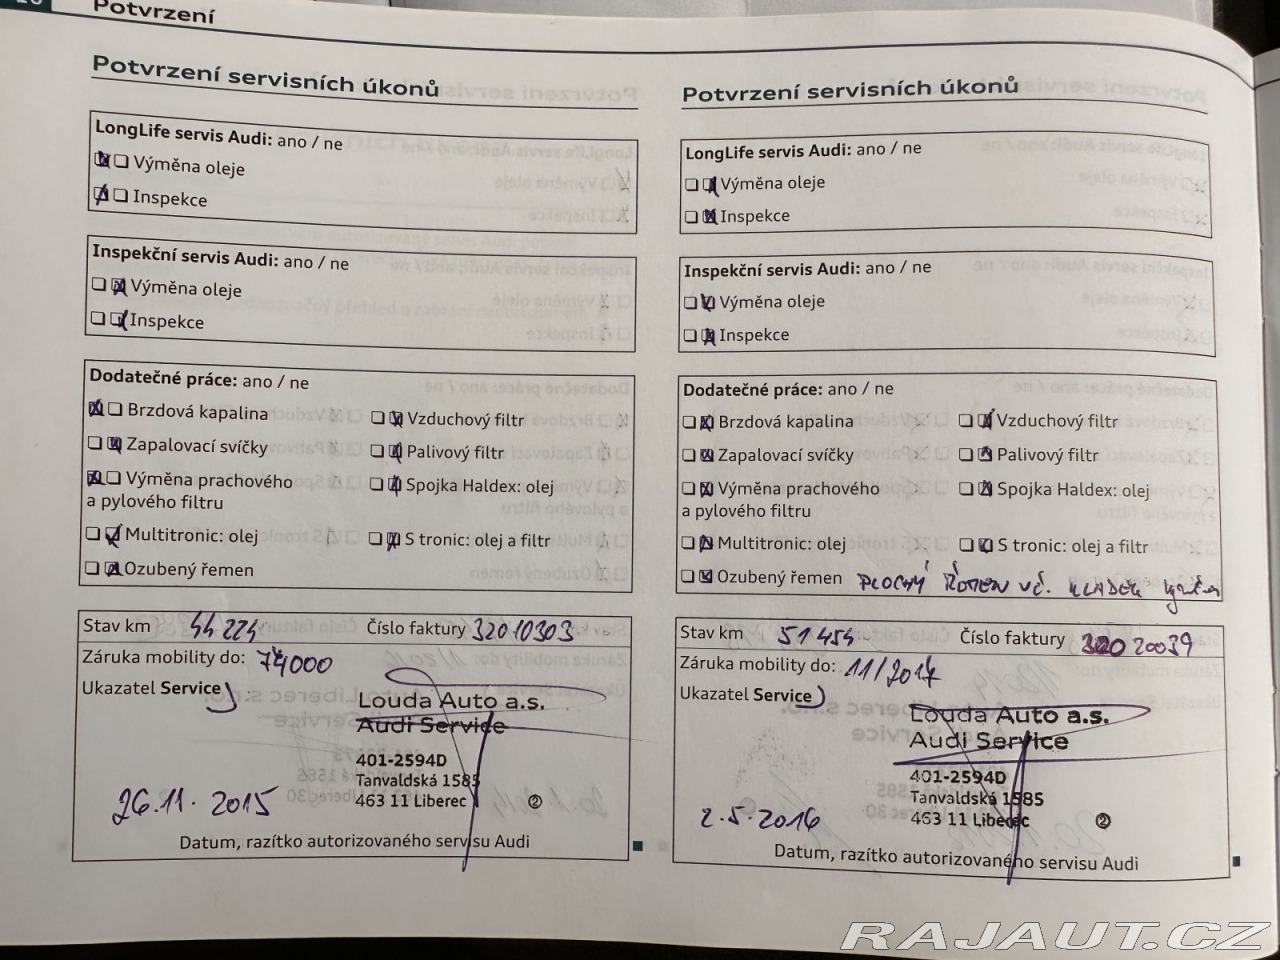 Potvrzení
Potvrzení servisních úkonů
LongLife servis Audi: ano / ne
Výměna oleje
Inspekce
Inspekční servis Audi: ano / ne
Výměna oleje
Inspekce
Dodatečné práce: ano / ne
Brzdová kapalina
Vzduchový filtr
Zapalovací svíčky
Palivový filtr
Výměna prachového
a pylového filtru
Spojka Haldex: olej
Multitronic: olej
S tronic: olej a filtr
Ozubený řemen
Stav km 44 224 Číslo faktury 32010303
Záruka mobility do: 74000
Ukazatel Service
Louda Auto a.s.
Audi Service
401-2594D
Tanvaldská 1585
463 11 Liberec ②
26.11.2015
Datum, razítko autorizovaného servisu Audi
Potvrzení servisních úkonů
LongLife servis Audi: ano / ne
Výměna oleje
Inspekce
Inspekční servis Audi: ano / ne
Výměna oleje
Inspekce
Dodatečné práce: ano / ne
Brzdová kapalina
Vzduchový filtr
Zapalovací svíčky
Palivový filtr
Výměna prachového
a pylového filtru
Spojka Haldex: olej
Multitronic: olej
S tronic: olej a filtr
Ozubený řemen PLOCHÝ ŘEMEN VČ. KLADEK
Stav km 51 454 Číslo faktury 32020039
Záruka mobility do: 11/2017
Ukazatel Service
Louda Auto a.s.
Audi Service
401-2594D
Tanvaldská 1585
463 11 Liberec ②
2.5.2016
Datum, razítko autorizovaného servisu Audi
RAJAUT.CZ